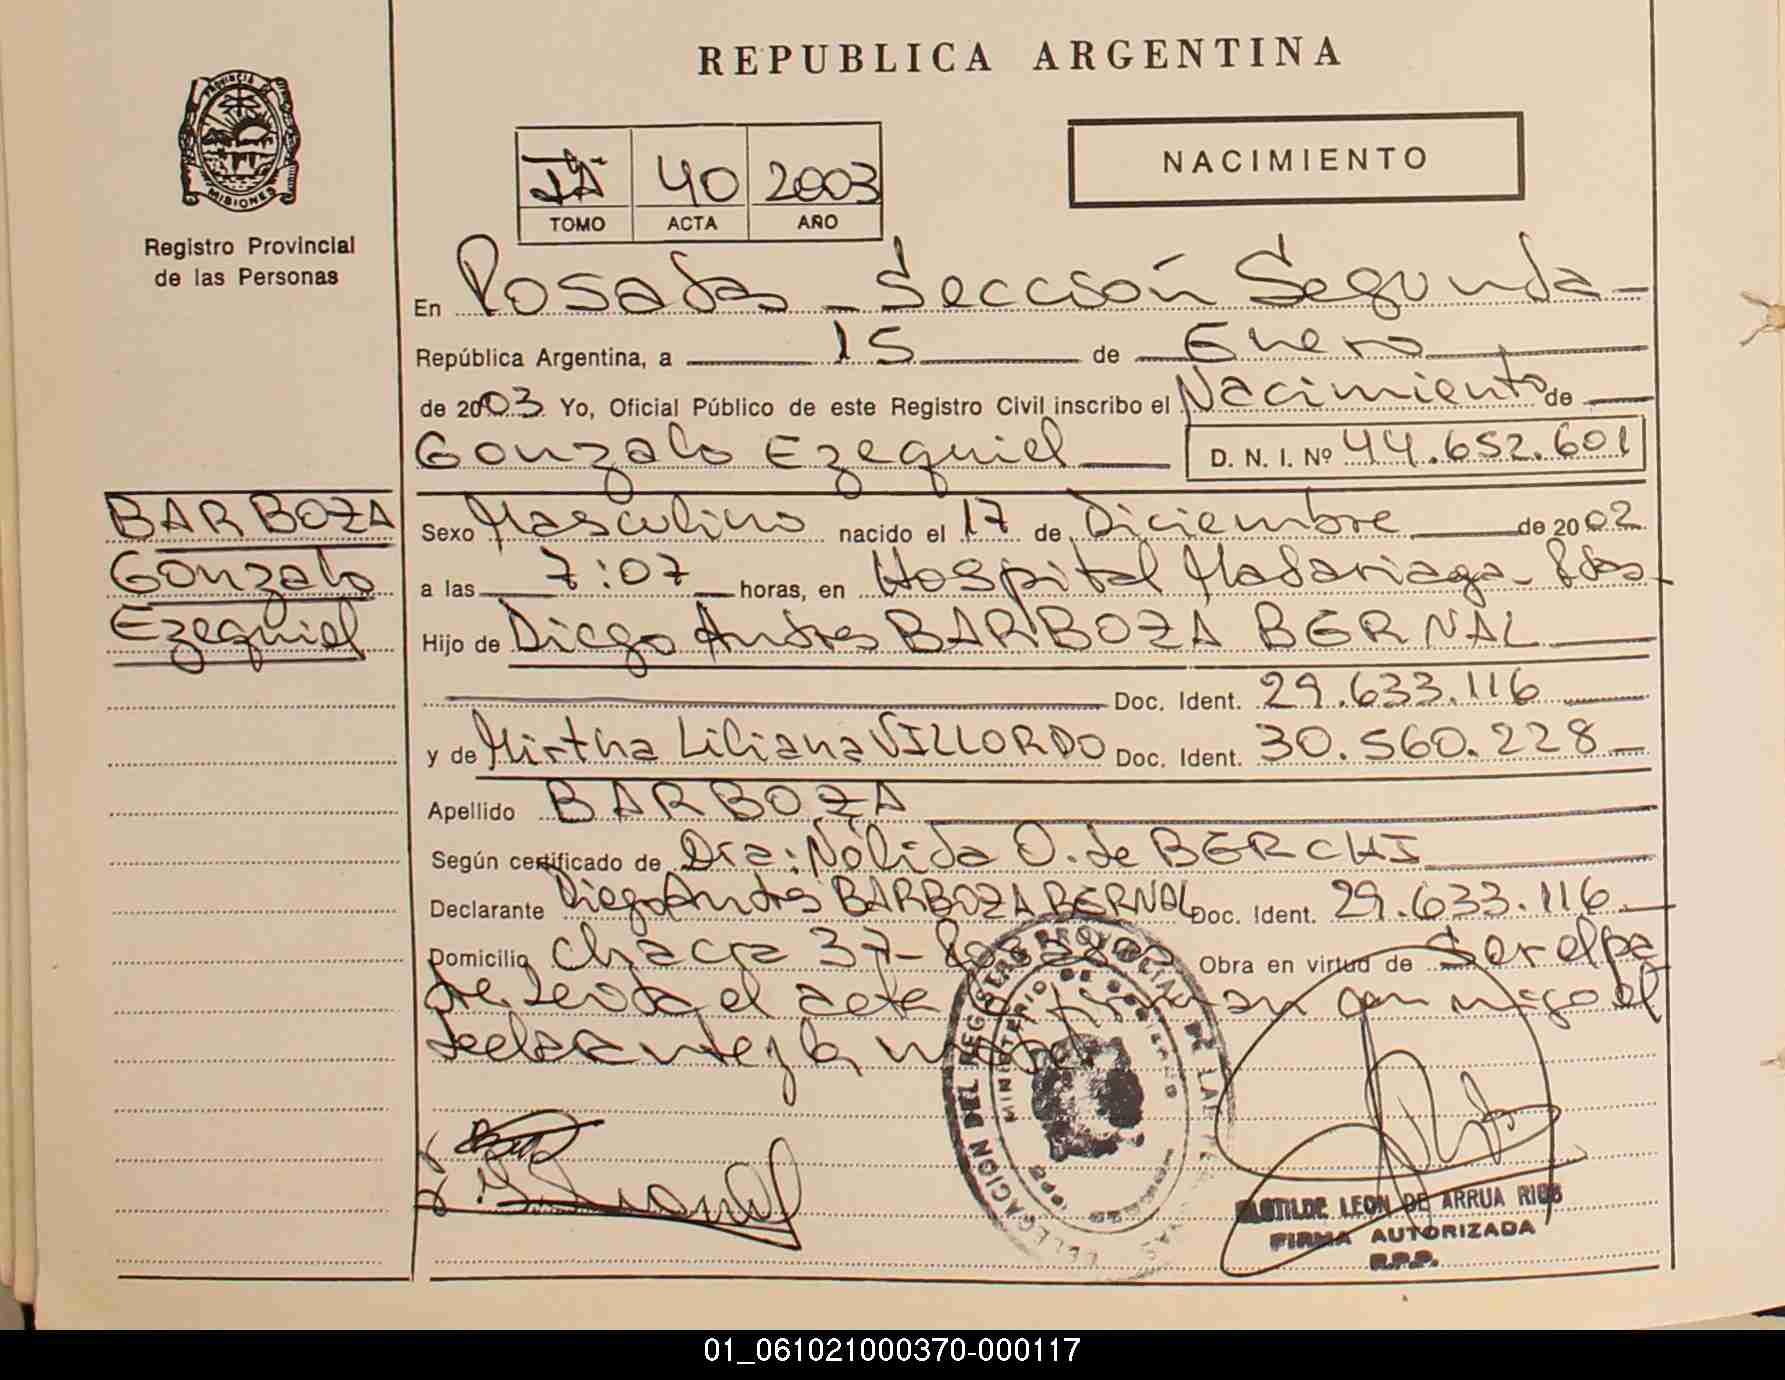 REPUBLICA ARGENTINA
PROVINCIA DE MISIONES
Registro Provincial
de las Personas
40 2003
TOMO ACTA AÑO
NACIMIENTO
En Posadas - Sección Segunda -
República Argentina, a 15 de Enero
de 2003 Yo, Oficial Público de este Registro Civil inscribo el Nacimiento de
Gonzalo Ezequiel D. N. I. Nº 44.652.601
BARBOZA
Gonzalo
Ezequiel
Sexo Masculino nacido el 17 de Diciembre de 2002
a las 7:07 horas, en Hospital Madariaga - Pdas
Hijo de Diego Andres BARBOZA BERNAL
Doc. Ident. 29.633.116
y de Mirtha Liliana VILLORDO Doc. Ident. 30.560.228
Apellido BARBOZA
Según certificado de Dra: Nélida O. de BERCHI
Declarante Diego Andres BARBOZA BERNAL Doc. Ident. 29.633.116
Domicilio Chacra 37 - Posadas Obra en virtud de Ser el pa
dre. Leída el acta la firman conmigo el
declarante y la madre
DELEGACION DEL REGISTRO PROVINCIAL DE LAS PERSONAS
MINISTERIO DE GOBIERNO
CLOTILDE LEON DE ARRUA RIOS
FIRMA AUTORIZADA
R.P.P.
01_061021000370-000117